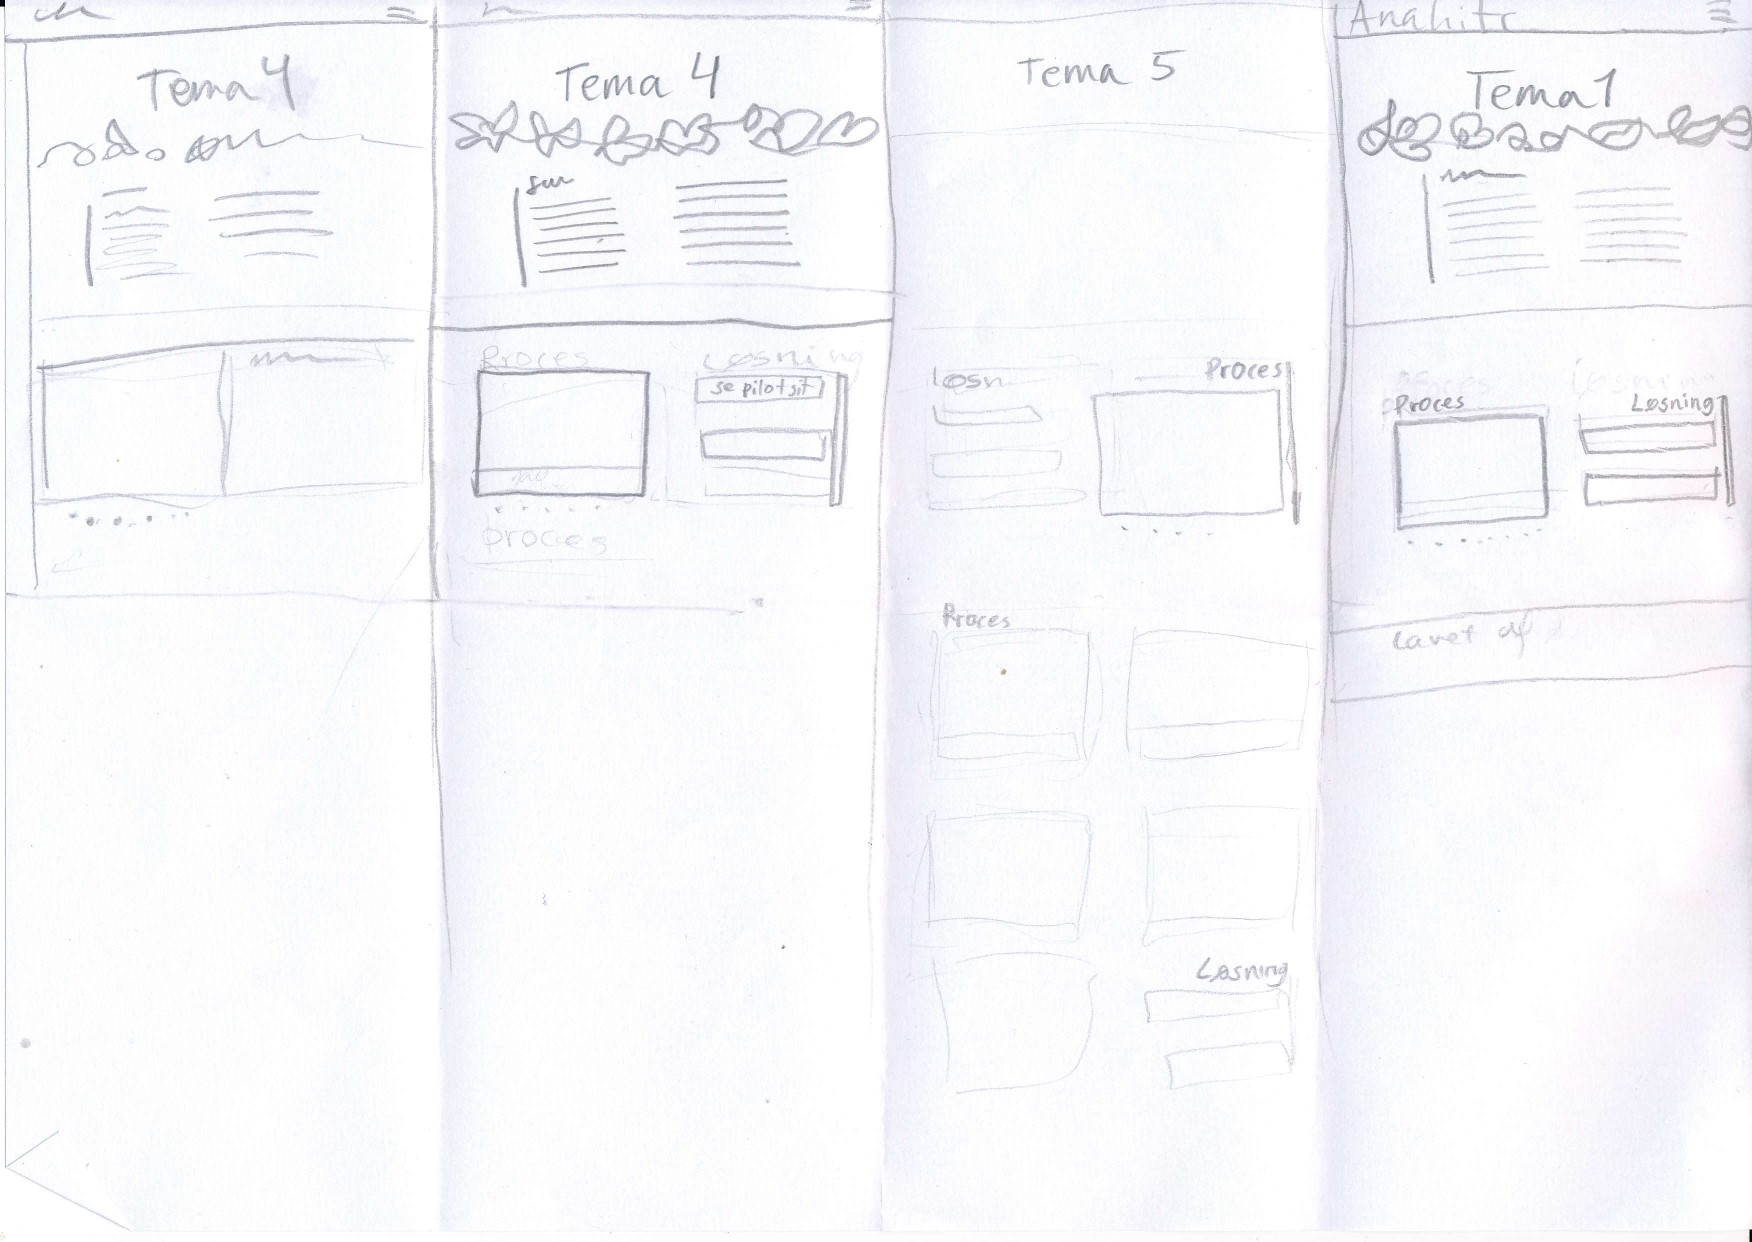 Tema 4
Tema 4
Proces
Løsning
se pilotsit
Proces
Tema 5
Løsn
Proces
Proces
Løsning
Anahita
Tema 1
Proces
Løsning
Proces
Løsning
Lavet af